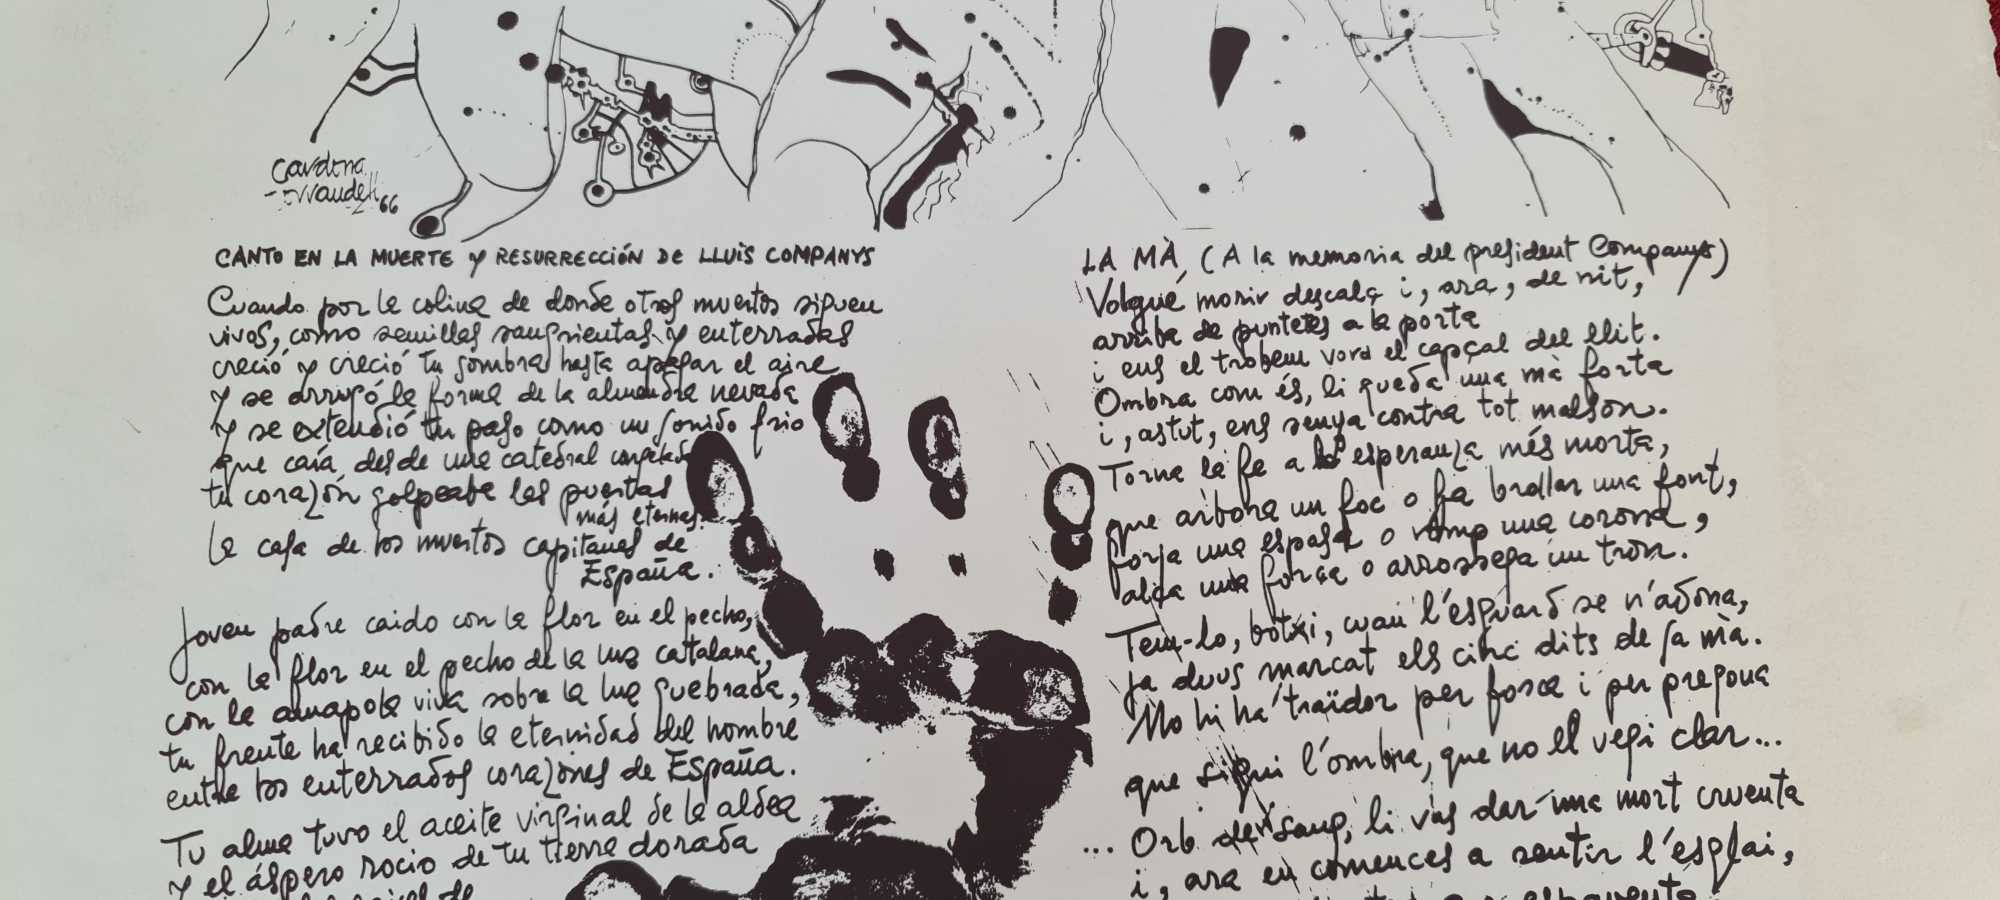 66
CANTO EN LA MUERTE Y RESURRECCIÓN DE LLUIS COMPANYS
Cuando por la colina de donde otros muertos siguen
vivos, como semillas sangrientas y enterradas
creció y creció tu sombra hasta apagar el aire
y se arrugó la forma de la almendra nevada
y se extendió tu paso como un sonido frio
que caía desde una catedral congelada
tu corazón golpeaba las puertas
más eternas:
la casa de los muertos capitanes de
España.
Joven padre caido con la flor en el pecho,
con la flor en el pecho de la luz catalana,
con la amapola viva sobre la luz quebrada,
tu frente ha recibido la eternidad del hombre
entre los enterrados corazones de España.
Tu alma tuvo el aceite virginal de la aldea
y el áspero rocio de tu tierra dorada
LA MÀ, (A la memoria del president Companys)
Volgué morir descalç i, ara, de nit,
arriba de puntetes a la porta
i ens el trobem vora el capçal del llit.
Ombra com és, li queda una mà forta
i, astut, ens senya contra tot malson.
Torna la fe a l'esperanza més morta,
que arbora un foc o fa brollar una font,
forja una espasa o romp una corona,
alça una força o arrossega un tron.
Tem-lo, botxi, cuan l'esguard se n'adona,
ja duus marcat els cinc dits de sa mà.
No hi ha traïdor per fosca i per pregona
que sigui l'ombra, que no el vegi clar...
... Orb de sang, li vas dar una mort cruenta
i, ara en comences a sentir l'esglai,